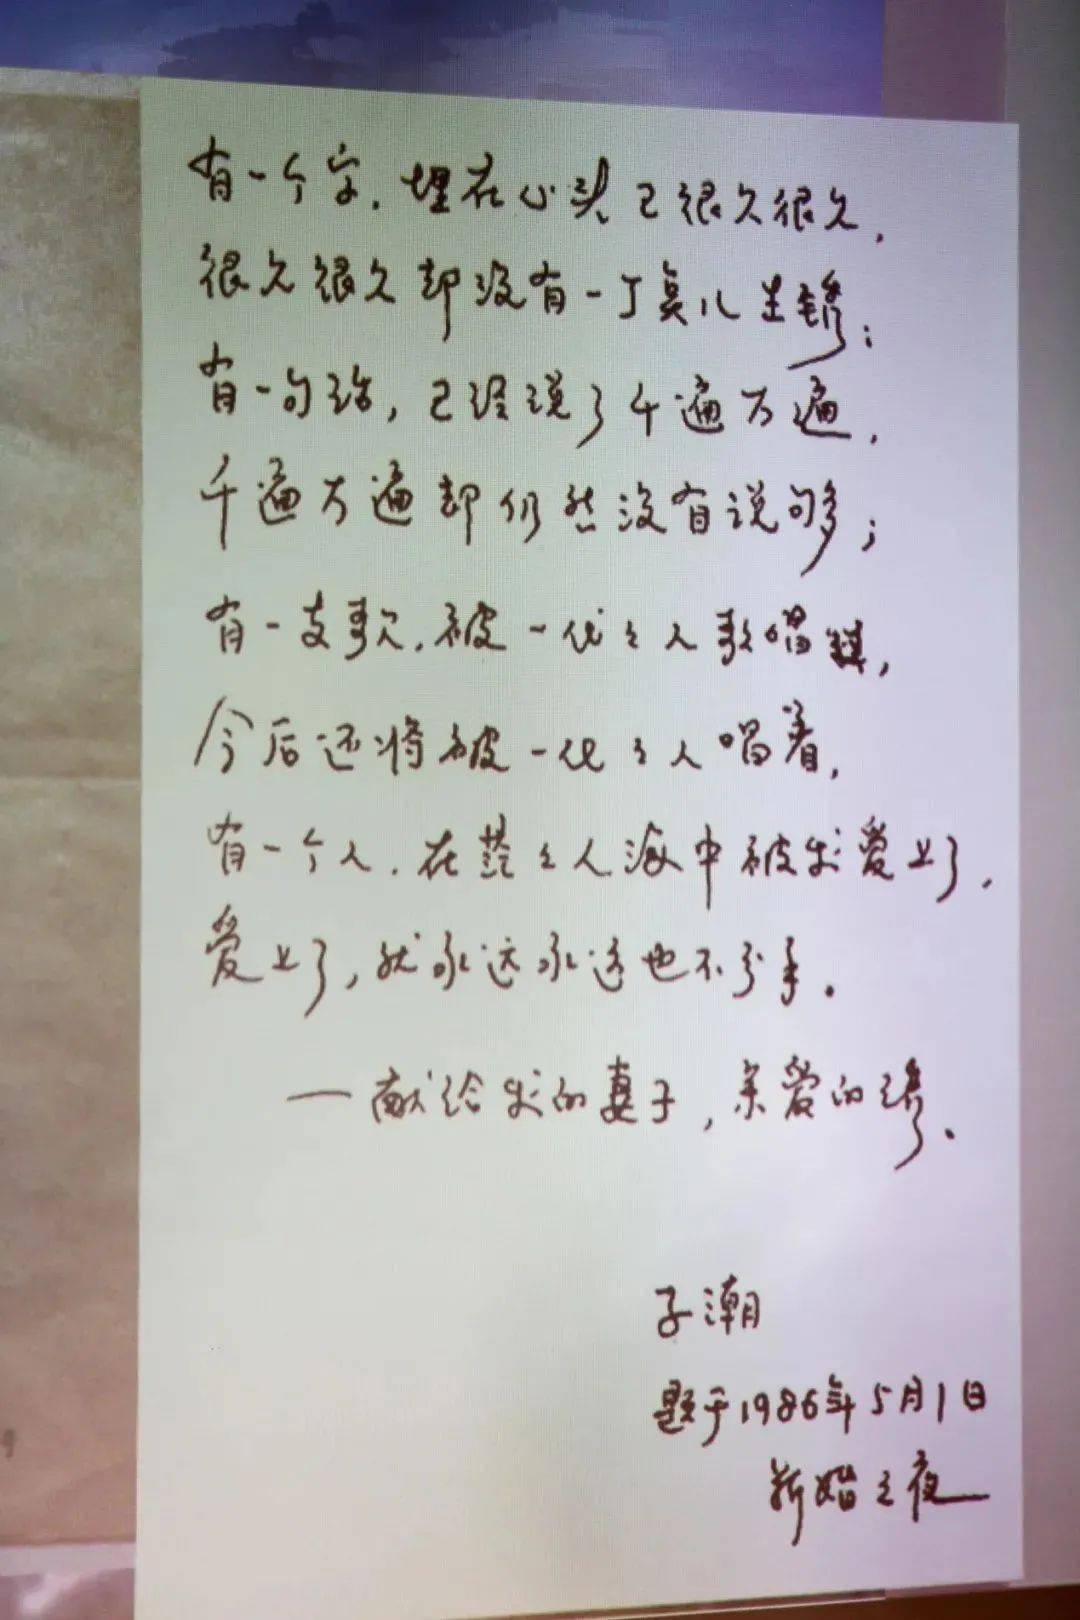 有一个字,埋在心头已很久很久,
很久很久却没有一丁点儿生锈;
有一句话,已经说了千遍万遍,
千遍万遍却仍然没有说够;
有一支歌,被一代代人歌唱,
今后还将被一代代人唱着,
有一个人,在茫茫人海中被我爱上了,
爱上了,就永远永远也不分手。
——献给我的妻子,亲爱的
子潮
题于1986年5月1日
新婚之夜